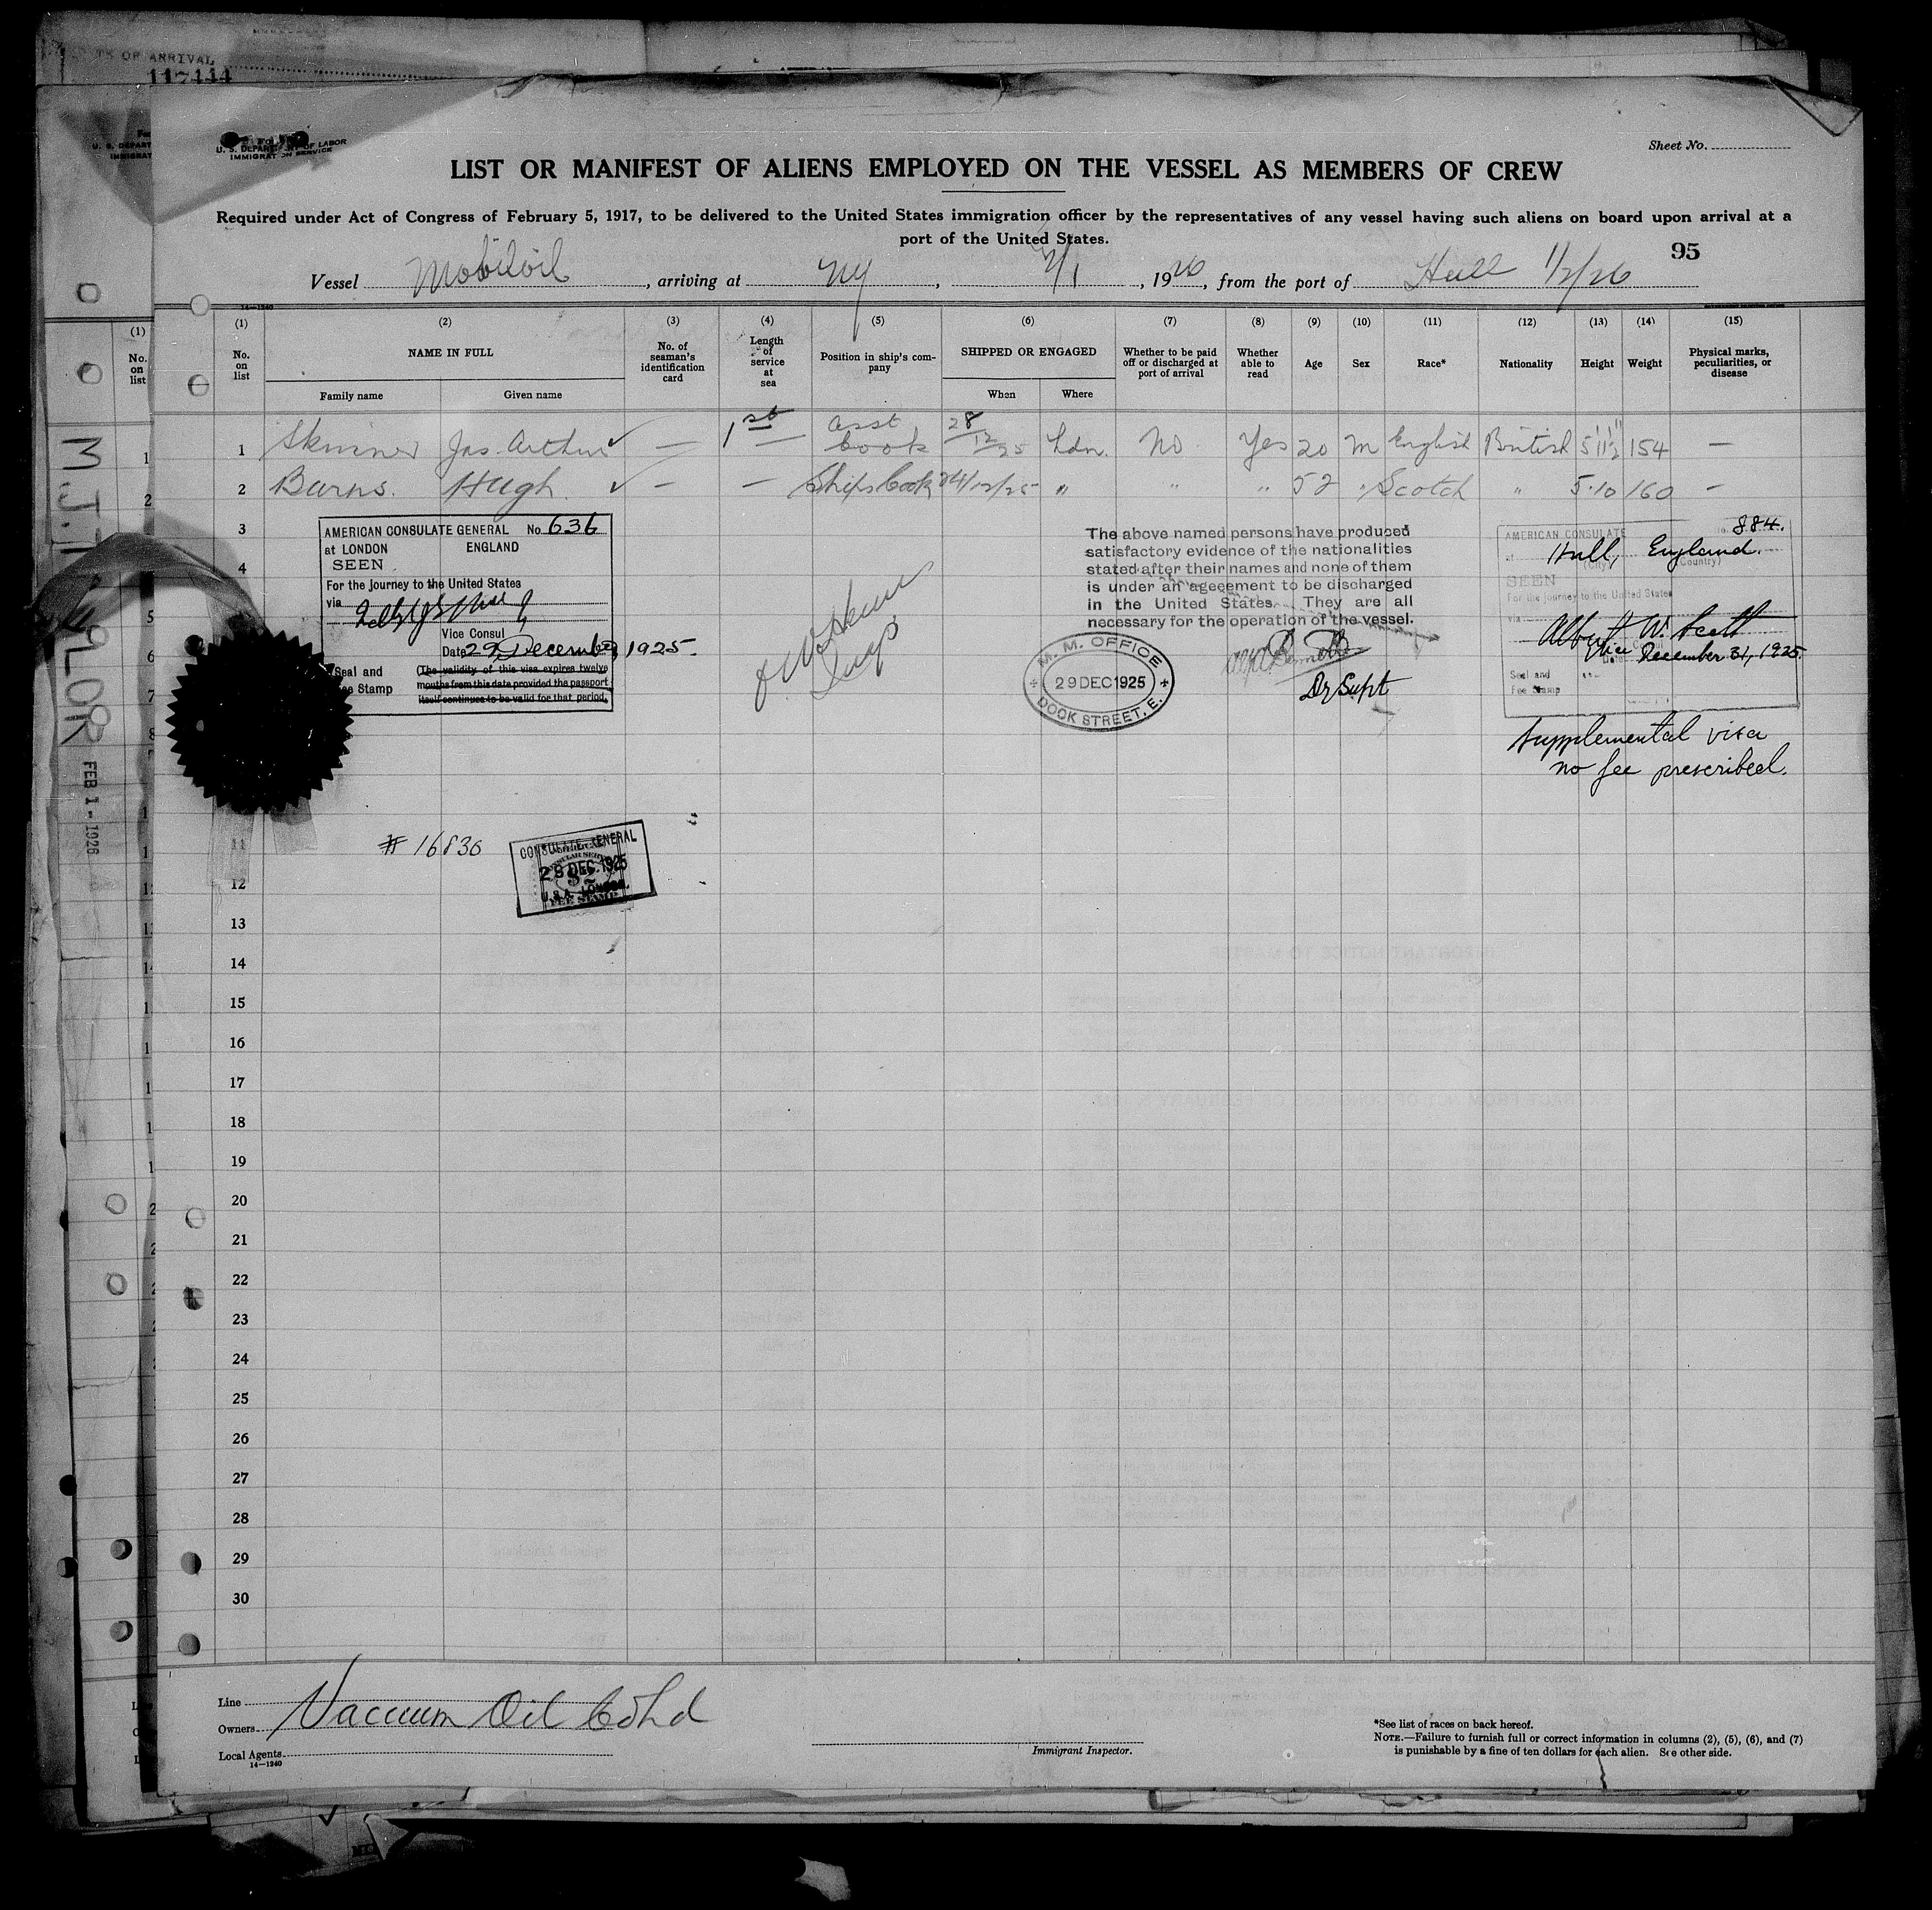 TS OF ARRIVAL
117444
U. S. DEPARTMENT OF LABOR
IMMIGRATION SERVICE
Sheet No.
LIST OR MANIFEST OF ALIENS EMPLOYED ON THE VESSEL AS MEMBERS OF CREW
Required under Act of Congress of February 5, 1917, to be delivered to the United States immigration officer by the representatives of any vessel having such aliens on board upon arrival at a
port of the United States.
95
Vessel Mobiloil, arriving at NY, 2/1, 1926, from the port of Hull 1/2/26
(1) (2) (3) (4) (5) (6) (7) (8) (9) (10) (11) (12) (13) (14) (15)
No. on list NAME IN FULL No. of seaman's identification card Length of service at sea Position in ship's company SHIPPED OR ENGAGED Whether to be paid off or discharged at port of arrival Whether able to read Age Sex Race* Nationality Height Weight Physical marks, peculiarities, or disease
Family name Given name When Where
1 Skinner Jas. Arthur ✓ — 1st — Asst Cook 28/12/25 Ldn. No Yes 20 M English British 5 11½ 154 —
2 Burns. Hugh. ✓ — — Ships Cook 24/12/25 " " " 52 " Scotch " 5.10 160 —
3
4
5
6
7
8
11
12
13
14
15
16
17
18
19
20
21
22
23
24
25
26
27
28
29
30
AMERICAN CONSULATE GENERAL No. 636
at LONDON ENGLAND
SEEN
For the journey to the United States
via
Vice Consul
Date 29 December 1925
Seal and
Fee Stamp
(The validity of this visa expires twelve
months from this date provided the passport
itself continues to be valid for that period.
The above named persons have produced
satisfactory evidence of the nationalities
stated after their names and none of them
is under an agreement to be discharged
in the United States. They are all
necessary for the operation of the vessel.
M. M. OFFICE
29 DEC 1925
DOCK STREET, E.
Dy Supt
AMERICAN CONSULATE No. 884.
at Hull, England.
(City) (Country)
SEEN
For the journey to the United States
via
Albert W. Scott
Vice Consul
Date December 31, 1925.
Seal and
Fee Stamp
Supplemental visa
no fee prescribed.
# 16830
CONSULATE GENERAL
29 DEC. 1925
U.S.A. LONDON.
FEE STAMP
FEB 1 - 1926
Line
Owners Vacuum Oil Co Ltd
Local Agents
14—1240
Immigrant Inspector.
*See list of races on back hereof.
NOTE.—Failure to furnish full or correct information in columns (2), (5), (6), and (7)
is punishable by a fine of ten dollars for each alien. See other side.